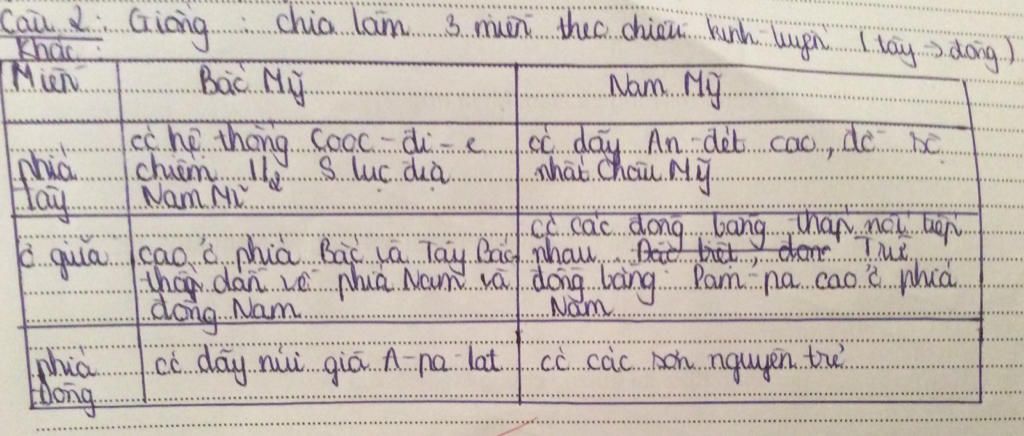 Câu 2: Giống: chia làm 3 miền theo chiều kinh tuyến (tây → đông)
Khác:
Miền Bắc Mỹ Nam Mỹ
phía tây
có hệ thống Cooc-đi-e
chiếm 1/2 S lục địa
Nam Mĩ
có dãy An-dét cao, đồ sộ
nhất Châu Mỹ
ở giữa
cao ở phía Bắc và Tây Bắc
thấp dần về phía Nam và
đông Nam
có các đồng bằng thấp nối tiếp
nhau. Đặc biệt, đồng Trừ
đồng bằng Pam-pa cao ở phía
Nam
phía Đông
có dãy núi già A-pa-lat
có các sơn nguyên trẻ